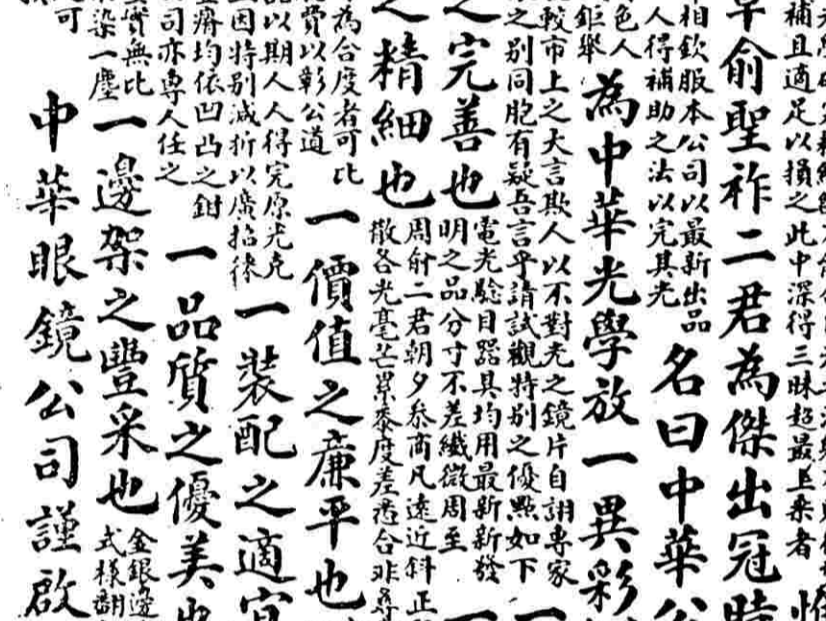 補且適足以損之此中深得三昧超最上乘者
惟
俞聖祚二君為傑出冠時
相欽服本公司以最新出品
人得補助之法以完其光
名曰中華公
色人
鉅舉
為中華光學放一異彩
較市上之大言欺人以不對光之鏡片自詡專家
之別同胞有疑吾言乎請試觀特別之優點如下
一
之完善也
電光驗目器具均用最新新發
明之品分寸不差纖微周至
一
之精細也
周俞二君朝夕叅商凡遠近斜正
散各光毫芒絫黍度差悉合非尋
為合度者可比
費以彰公道
一價值之廉平也
以期人人得完原光
因特別減折以廣招徠
一裝配之適宜
均依凹凸之鉗
司亦專人任之
一品質之優美也
實無比
染一塵
一邊架之豐采也
金銀邊
式樣翻
可
中華眼鏡公司謹啟